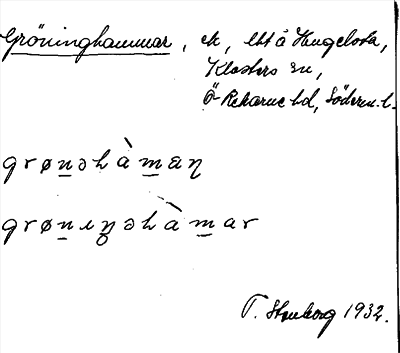 Gröninghammar, ek, ltt å Hugelsta,
Klosters sn,
Ö-Rekarne hd, Söderm. l.
grøn̲əhàm̲aŋ
grøn̲ıŋəhàm̲ar
T. Stenborg 1932.